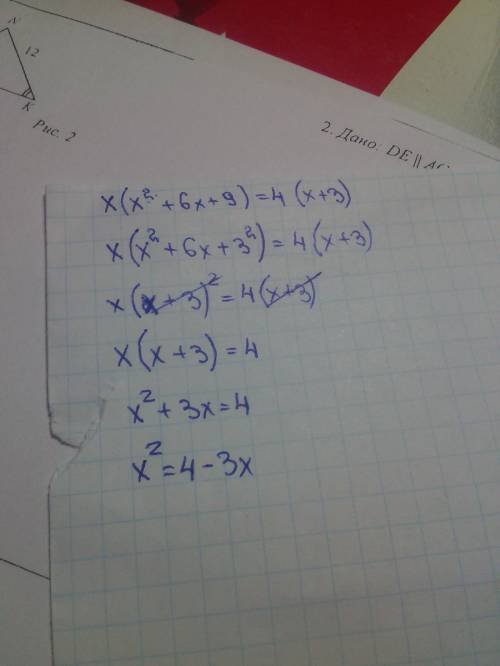 N
12
K
Рис. 2
2. Дано: DE || AC
x(x² + 6x + 9) = 4 (x+3)
x(x² + 6x + 3²) = 4 (x+3)
x(x + 3)² = 4 (x+3)
x(x + 3) = 4
x² + 3x = 4
x² = 4 - 3x